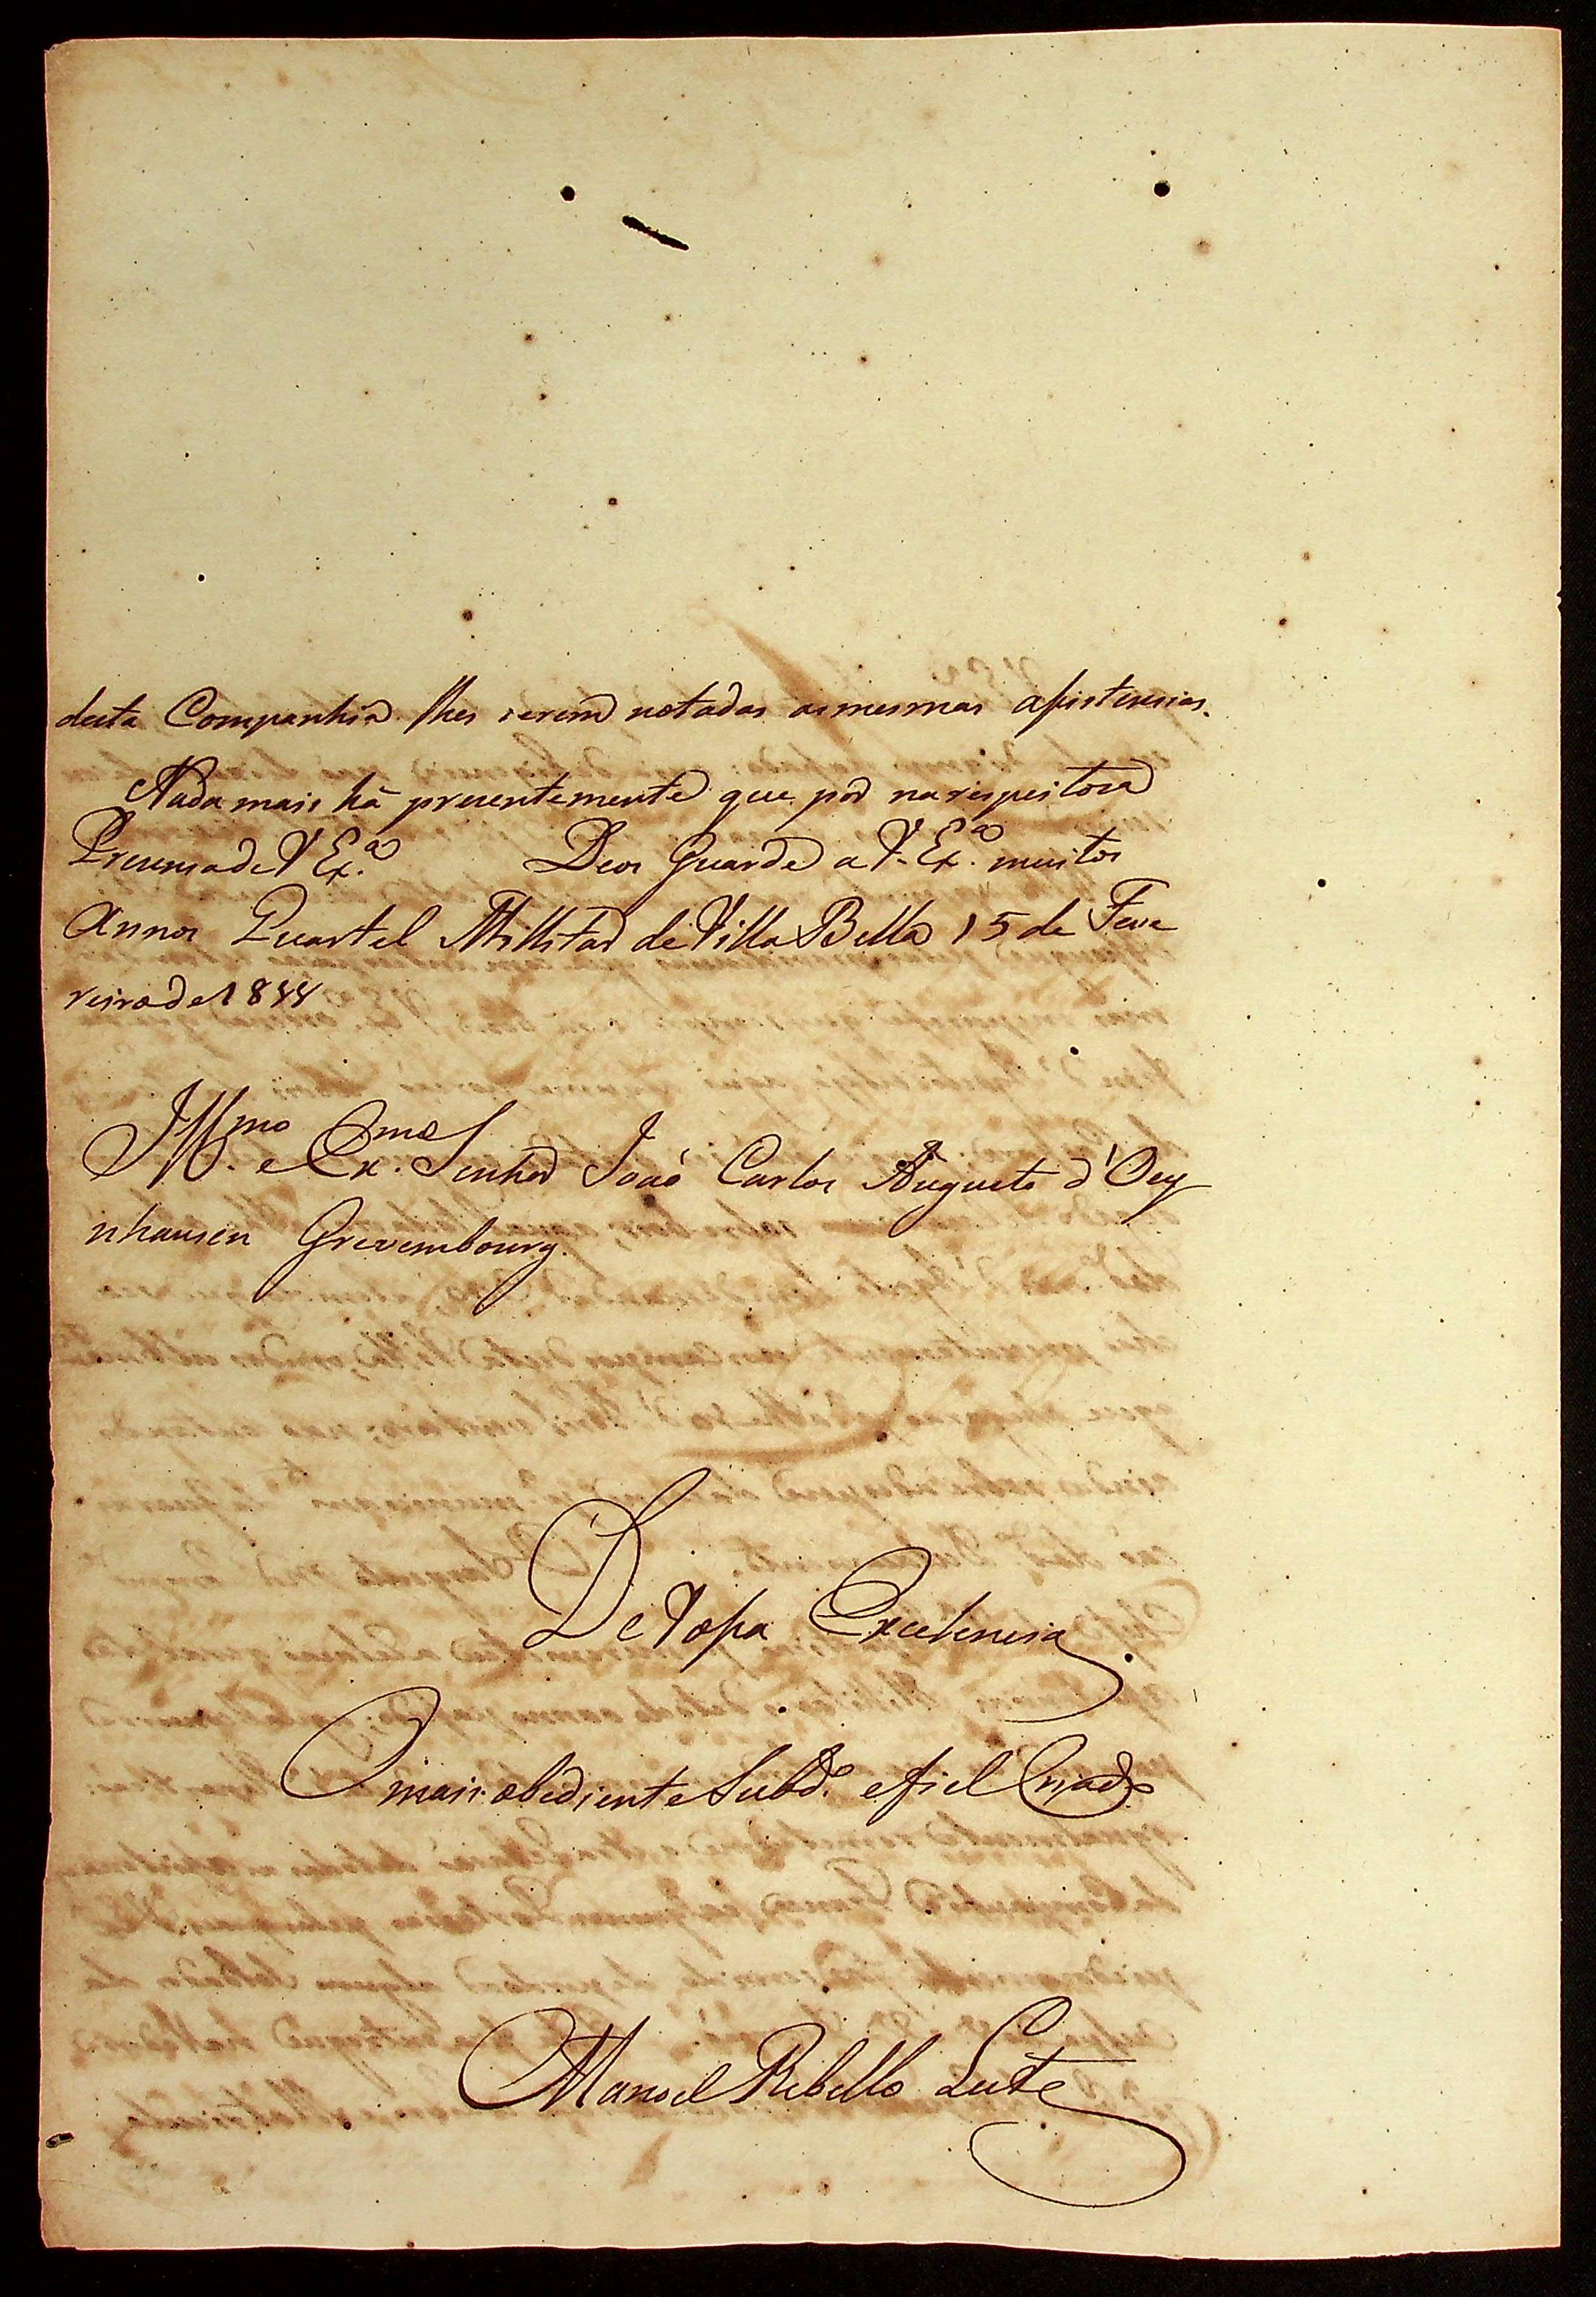 desta Companhia lhes serem notadas as mesmas assistencias.
Nada mais há prezentemente que pôr na respeitosa
Prezensa de V Ex.ª Deos Guarde a V. Ex.ª muitos
Annos Quartel Millitar de Villa Bella 15 de Feve
reiro de 1811
Ill.mo e Ex.mo Senhor João Carlos Augusto d'Oey
nhausen Grevembourg.
De Vossa Excelencia
O mais obediente Subd.º e fiel Criado
Manoel Rebello Leite